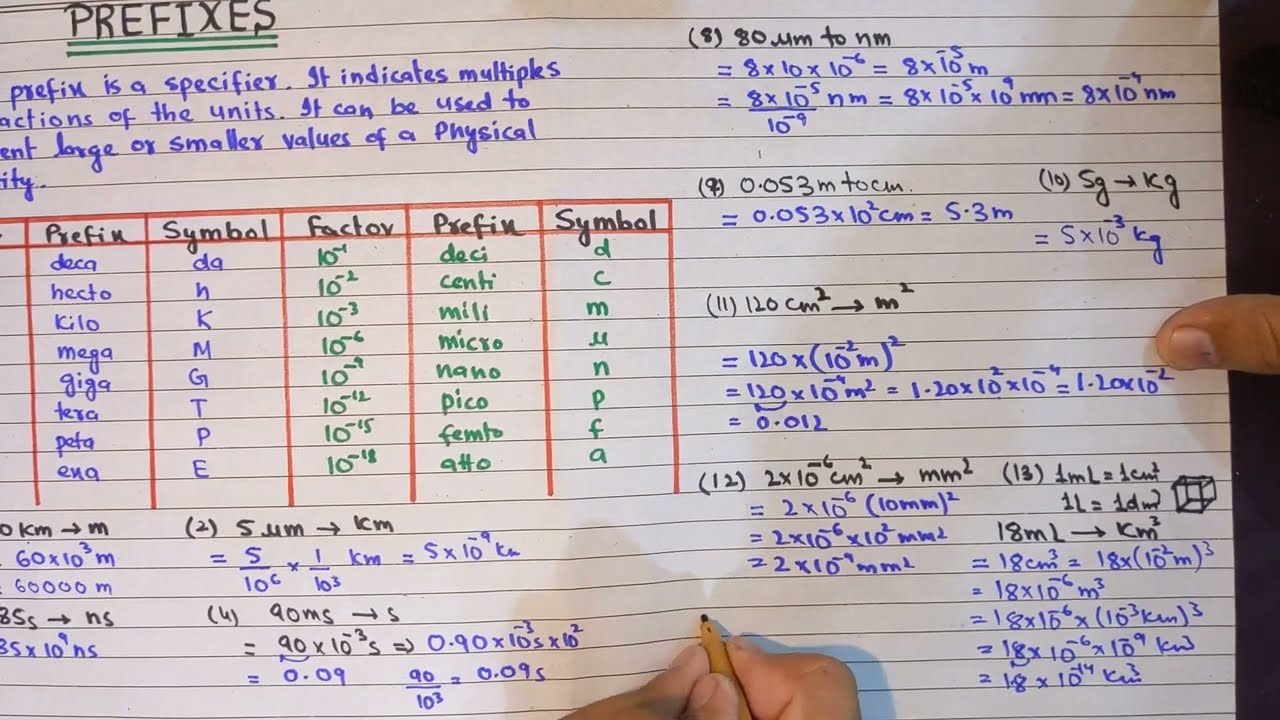 PREFIXES
prefix is a specifier. It indicates multiples
actions of the units. It can be used to
ent large or smaller values of a Physical
ity.
Prefix Symbol Factor Prefix Symbol
deca da 10⁻¹ deci d
hecto h 10⁻² centi c
Kilo K 10⁻³ mili m
mega M 10⁻⁶ micro μ
giga G 10⁻⁹ nano n
tera T 10⁻¹² pico p
peta P 10⁻¹⁵ femto f
exa E 10⁻¹⁸ atto a
0 Km → m
60×10³m
60000 m
35s → ns
35×10⁹ns
(2) 5 μm → Km
= 5/10⁶ × 1/10³ km = 5×10⁻⁹ km
(4) 90ms → s
= 90×10⁻³s ⇒ 0.90×10⁻³s×10²
= 0.09 90/10³ = 0.09s
(8) 80 μm to nm
= 8×10×10⁻⁶ = 8×10⁻⁵m
= 8×10⁻⁵/10⁻⁹ nm = 8×10⁻⁵×10⁹ nm = 8×10⁴nm
(9) 0.053m to cm.
= 0.053×10²cm = 5.3m
(10) 5g → Kg
= 5×10⁻³ kg
(11) 120 cm² → m²
= 120×(10⁻²m)²
= 120×10⁻⁴m² = 1.20×10²×10⁻⁴ = 1.20×10⁻²
= 0.012
(12) 2×10⁻⁶cm² → mm²
= 2×10⁻⁶ (10mm)²
= 2×10⁻⁶×10² mm²
= 2×10⁻⁴mm²
(13) 1mL = 1cm³
1L = 1dm³
18mL → Km³
= 18cm³ = 18×(10⁻²m)³
= 18×10⁻⁶ m³
= 18×10⁻⁶×(10⁻³km)³
= 18×10⁻⁶×10⁻⁹ Km³
= 1.8×10⁻¹⁴ Km³